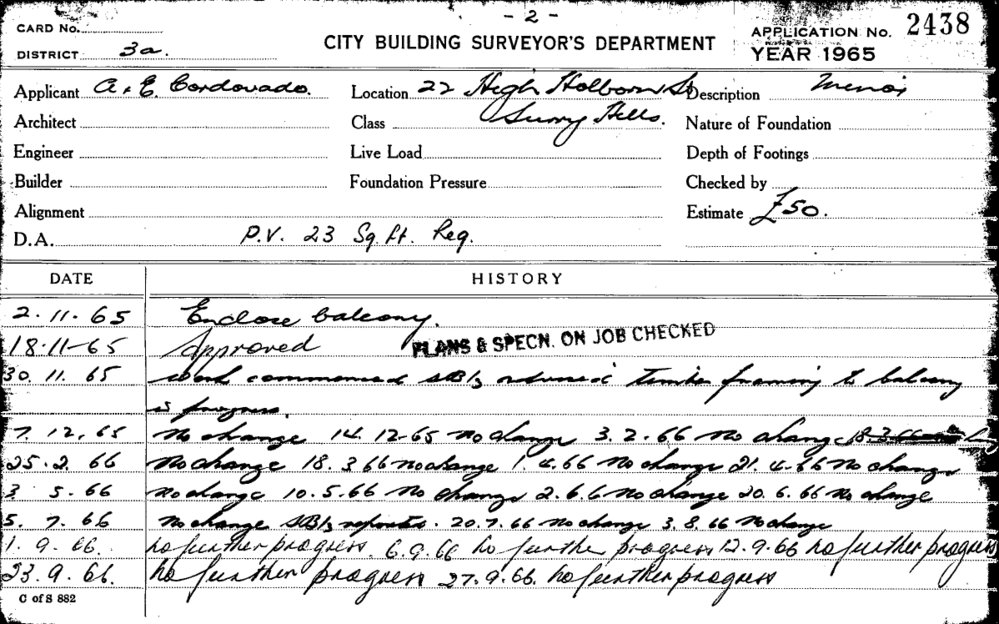 - 2 -
CARD No.
DISTRICT 3a.
CITY BUILDING SURVEYOR'S DEPARTMENT
APPLICATION No. 2438
YEAR 1965
Applicant A. E. Cordovado. Location 22 High Holborn St Description Minor
Architect Class Surry Hills. Nature of Foundation
Engineer Live Load Depth of Footings
Builder Foundation Pressure Checked by
Alignment Estimate £50.
D.A. P.V. 23 Sq. ft. Reg.
DATE HISTORY
2.11.65 Enclose balcony.
18-11-65 Approved PLANS & SPECN. ON JOB CHECKED
30.11.65 work commenced timber framing to balcony
in progress.
7.12.65 No change 14.12-65 No change 3.2.66 No change
25.2.66 No change 18.3.66 No change 1.4.66 No change 21.4.66 No change
3.5.66 No change 10.5.66 No change 2.6.6 No change 20.6.66 No change
5.7.66 No change 20.7.66 No change 3.8.66 No change
1.9.66. No further progress. 6.9.66 No further progress 12.9.66 No further progress
23.9.66. No further progress 27.9.66. No further progress
C of S 882